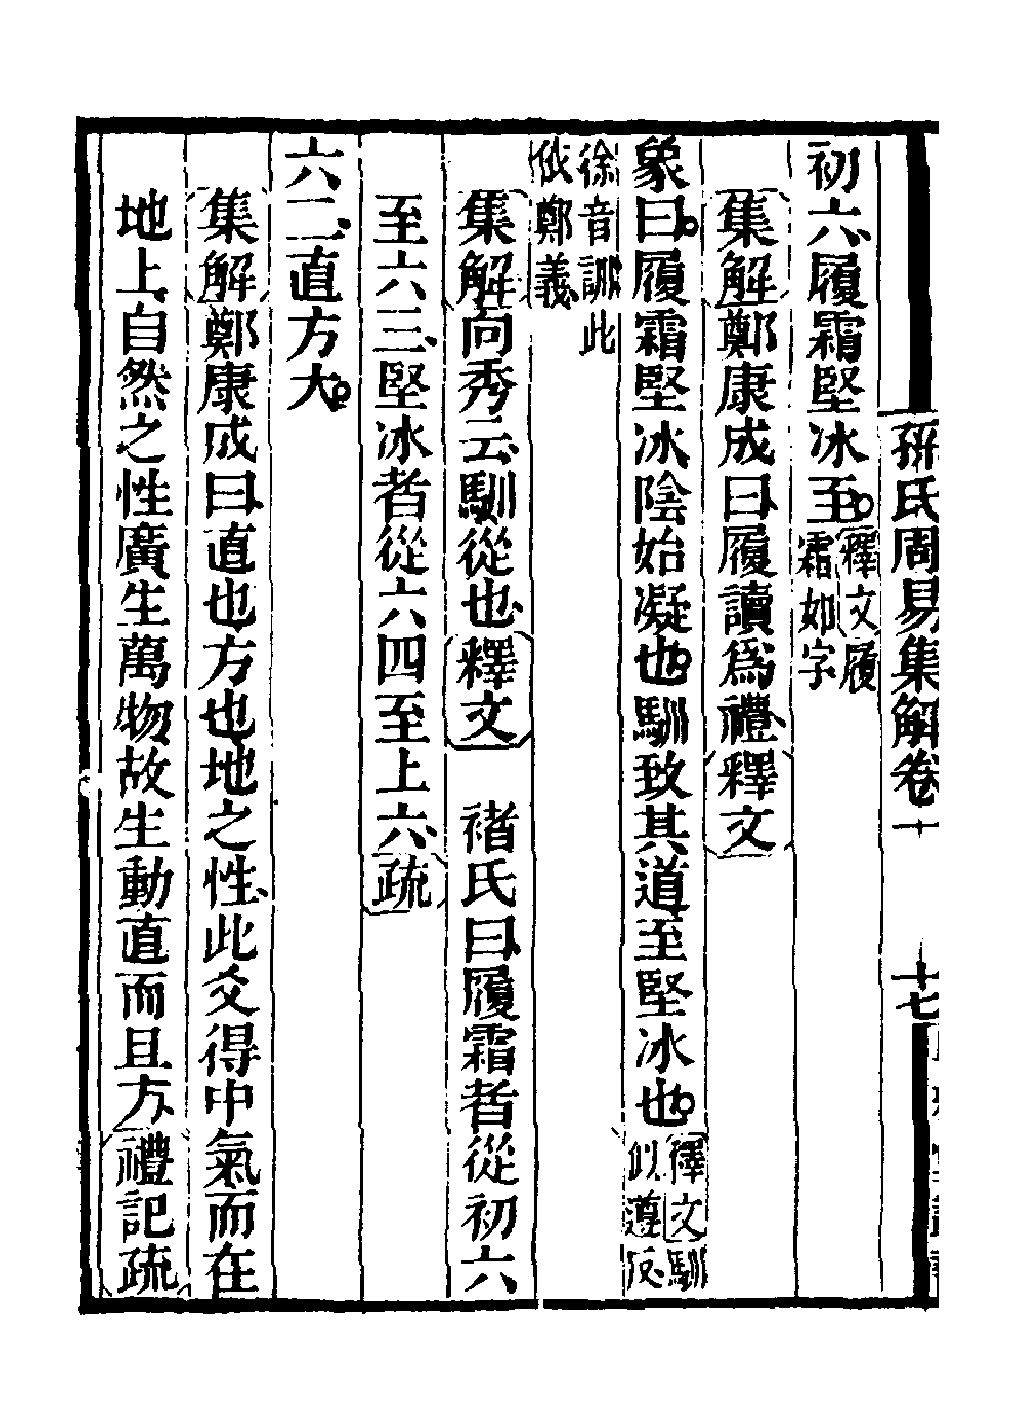 孫氏周易集解卷一 十七
初六履霜堅冰至釋文履
霜如字
集解鄭康成曰履讀爲禮釋文
象曰履霜堅冰陰始凝也馴致其道至堅冰也釋文馴
似遵反
徐音訓此
依鄭義
集解向秀云馴從也釋文 褚氏曰履霜者從初六
至六三堅冰者從六四至上六疏
六二直方大
集解鄭康成曰直也方也地之性此爻得中氣而在
地上自然之性廣生萬物故生動直而且方禮記疏